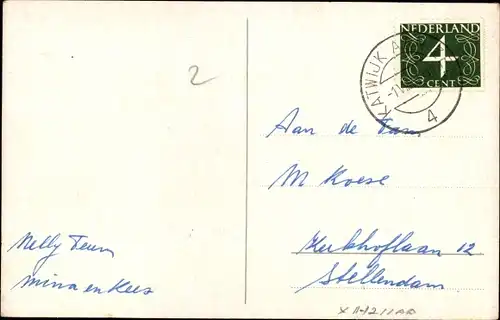 2
NEDERLAND
4
CENT
KATWIJK A
4
Aan de Fam
M Koese
Kerkhoflaan 12
Stellendam
Nelly Teun
Mina en Kees